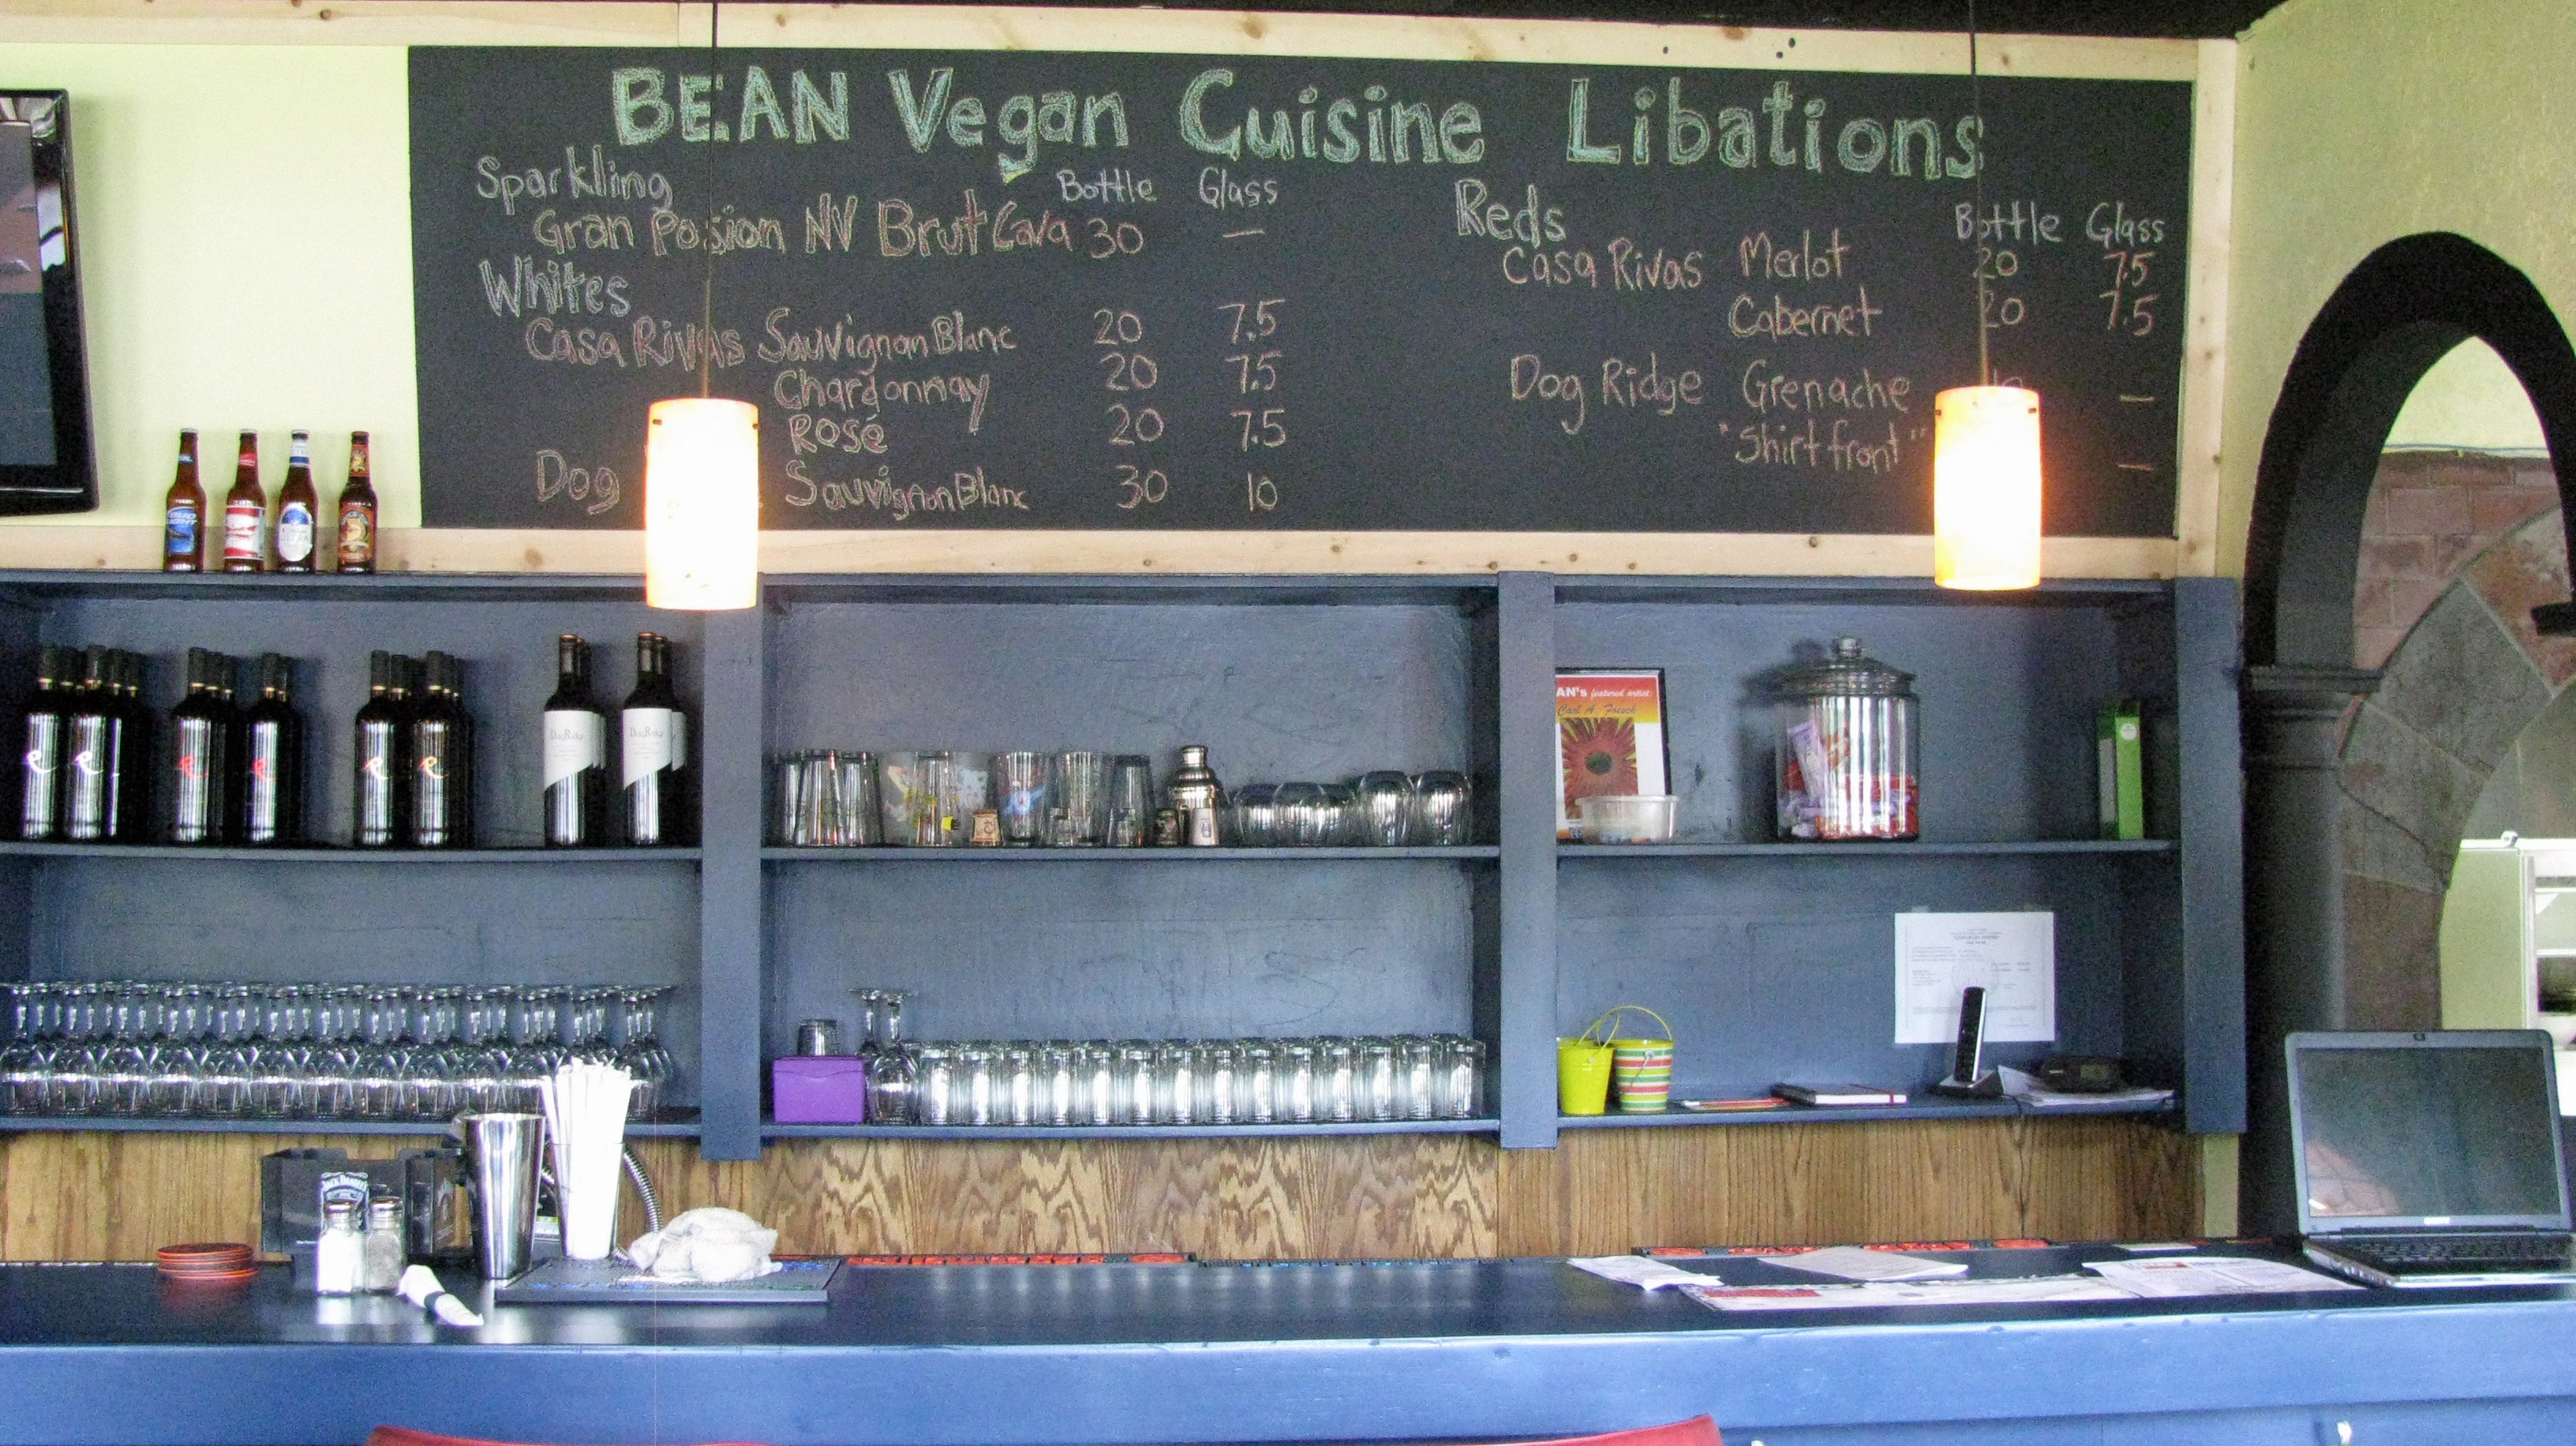 BEAN Vegan Cuisine Libations
Sparkling Bottle Glass
Gran Posion NV Brut Cava 30 —
Whites
Casa Rivas Sauvignon Blanc 20 7.5
Chardonnay 20 7.5
Rosé 20 7.5
Dog Sauvignon Blanc 30 10
Reds Bottle Glass
Casa Rivas Merlot 20 7.5
Cabernet 20 7.5
Dog Ridge Grenache —
"Shirtfront" —
BUD LIGHT
DogRidge
DogRidge
AN's featured artist:
Carl A. Foesch
JACK DANIEL'S